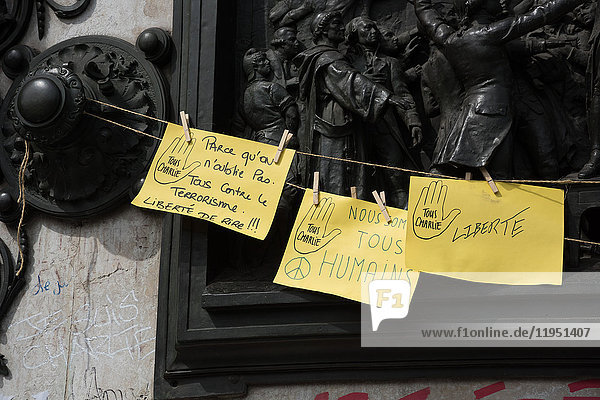 TOUS
CHARLIE
PARCE QU'ON
N'OUBLIE PAS.
TOUS CONTRE LE
TERRORISME.
LIBERTÉ DE RIRE !!!
TOUS
CHARLIE
NOUS SOM
TOUS
HUMAINS
TOUS
CHARLIE
LIBERTE
F1
ONLINE
© F1 ONLINE 11951407